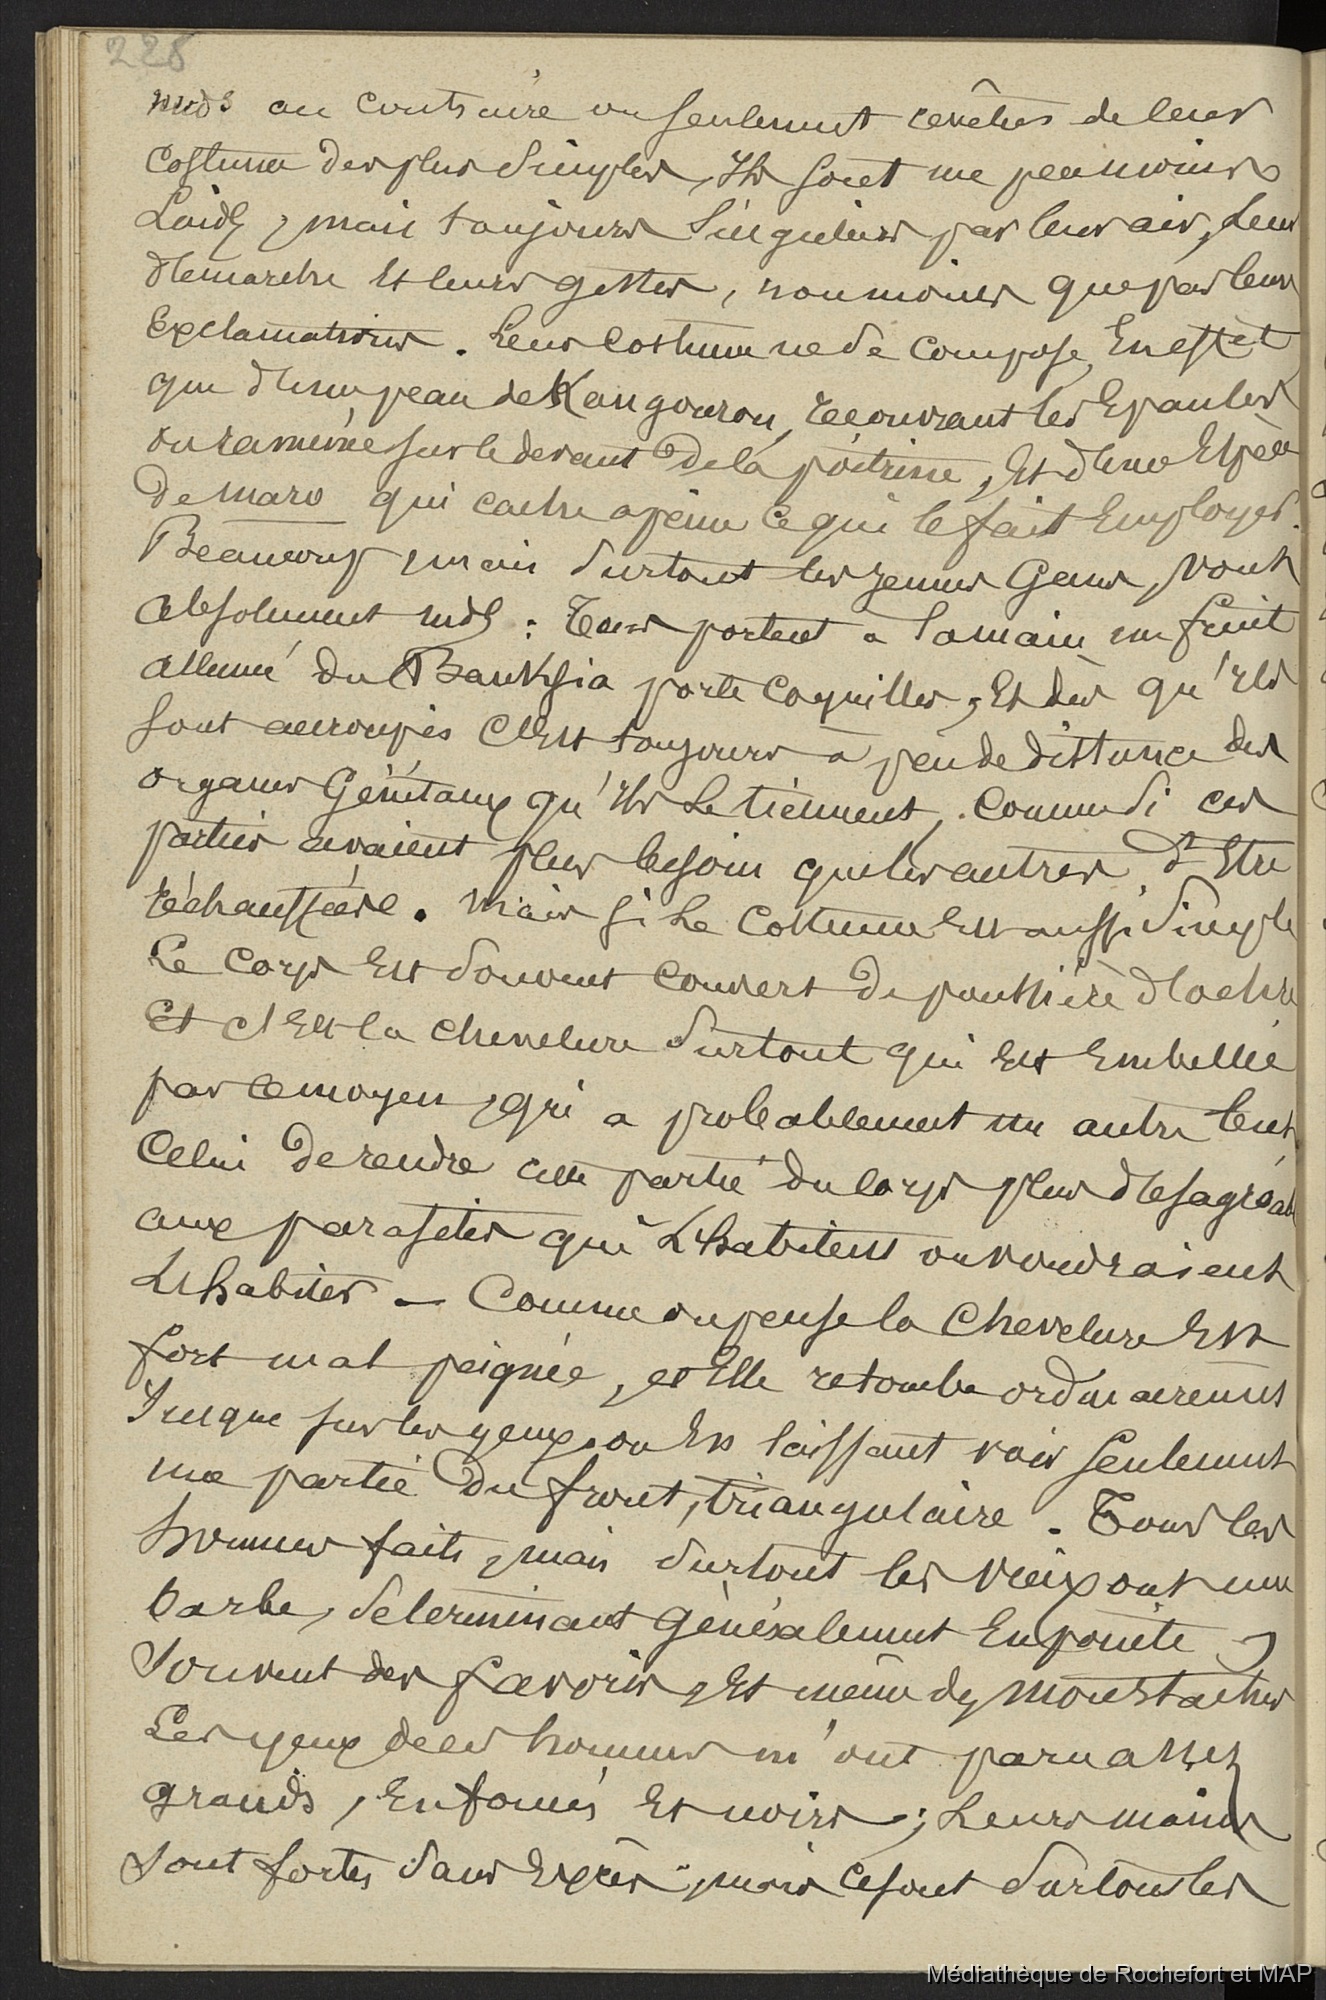 228
nuds au contraire ou seulement revêtus de leur
costume des plus simples, Ils sont un peu moins
Laids, mais toujours singuliers par leur air, leur
démarche et leurs gestes, non moins que par leurs
Exclamations. Leur costume ne se compose, En effet
que d'une peau de Kangourou, recouvrant les Epaules
ou ramenée sur le devant de la poitrine, Et d'une Espèce
de maro qui cache a peine ce qui le fait Employer.
Beaucoup, mais surtout les jeunes Gens, vont
absolument nuds : Tous portent a la main un fruit
allumé du Banksia porte coquilles, Et dès qu'Ils
sont accroupis c'Est toujours à peu de distance des
organes Génitaux qu'Ils Le tiennent, comme si ces
parties avaient plus besoin que les autres d'Etre
réchauffées. Mais si Le costume Est aussi simple
Le corps Est souvent couvert de poussière d'ochre
Et c'Est la chevelure surtout qui Est Embellie
par ce moyen, qui a probablement un autre but,
Celui de rendre cette partie du corps plus désagréab
aux parasites qui L'habitent ou voudraient
L'habiter — Comme on pense la chevelure Est
fort mal peignée, et Elle retombe ordinairement
Jusque sur les yeux, ou En laissant voir seulement
une partie du front, triangulaire. Tous les
hommes faits, mais surtout les vieux ont une
barbe, se terminant Généralement En pointe,
souvent des favoris, Et même des moustaches
Les yeux de ces hommes m'ont paru assez
grands, Enfoncés Et noirs ; Leurs mains
sont fortes sans Excès, mais ce sont surtout les
Médiathèque de Rochefort et MAP